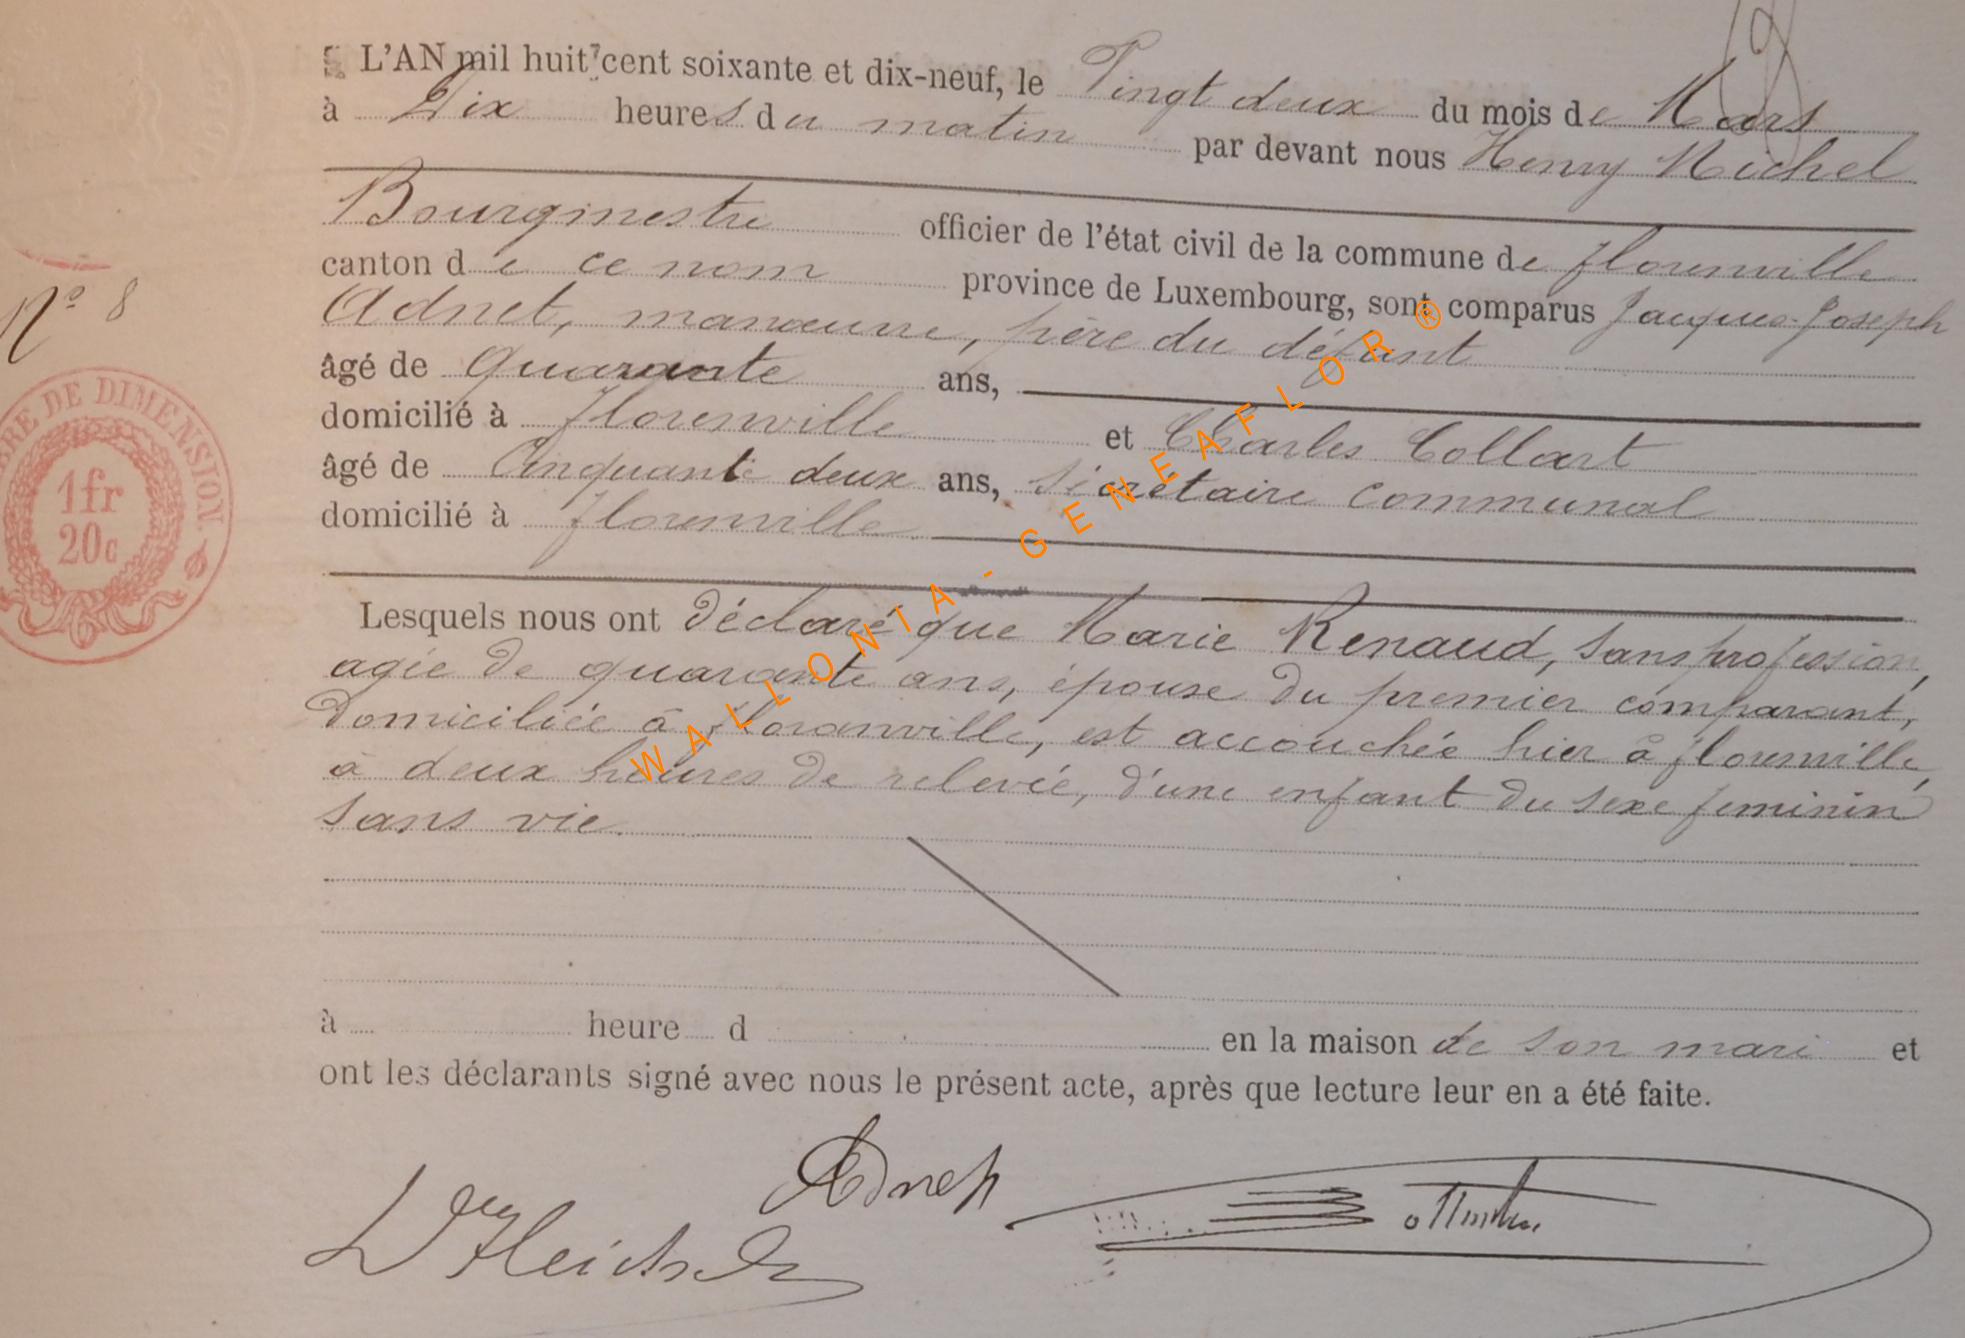 L'AN mil huit cent soixante et dix-neuf, le Vingt deux du mois de Mars
à Dix heures du matin par devant nous Henry Michel
Bourgmestre officier de l'état civil de la commune de florenville
canton de ce nom province de Luxembourg, sont comparus Jacques-Joseph
Adnet, manœuvre, père du défunt
âgé de quarante ans,
domicilié à florenville et Charles Collart
âgé de Cinquante deux ans, sécretaire communal
domicilié à florenville
Lesquels nous ont déclaré que Marie Renaud, sans profession,
agée de quarante ans, épouse du premier comparant,
domiciliée à floranville, est accouchée hier à florenville,
à deux heures de relevée, d'une enfant du sexe feminin
sans vie.
à heure d en la maison de son mari et
ont les déclarants signé avec nous le présent acte, après que lecture leur en a été faite.
Adnet
N° 8
TIMBRE DE DIMENSION.
1fr
20c
WALLONIA - GENEAFLOR ®